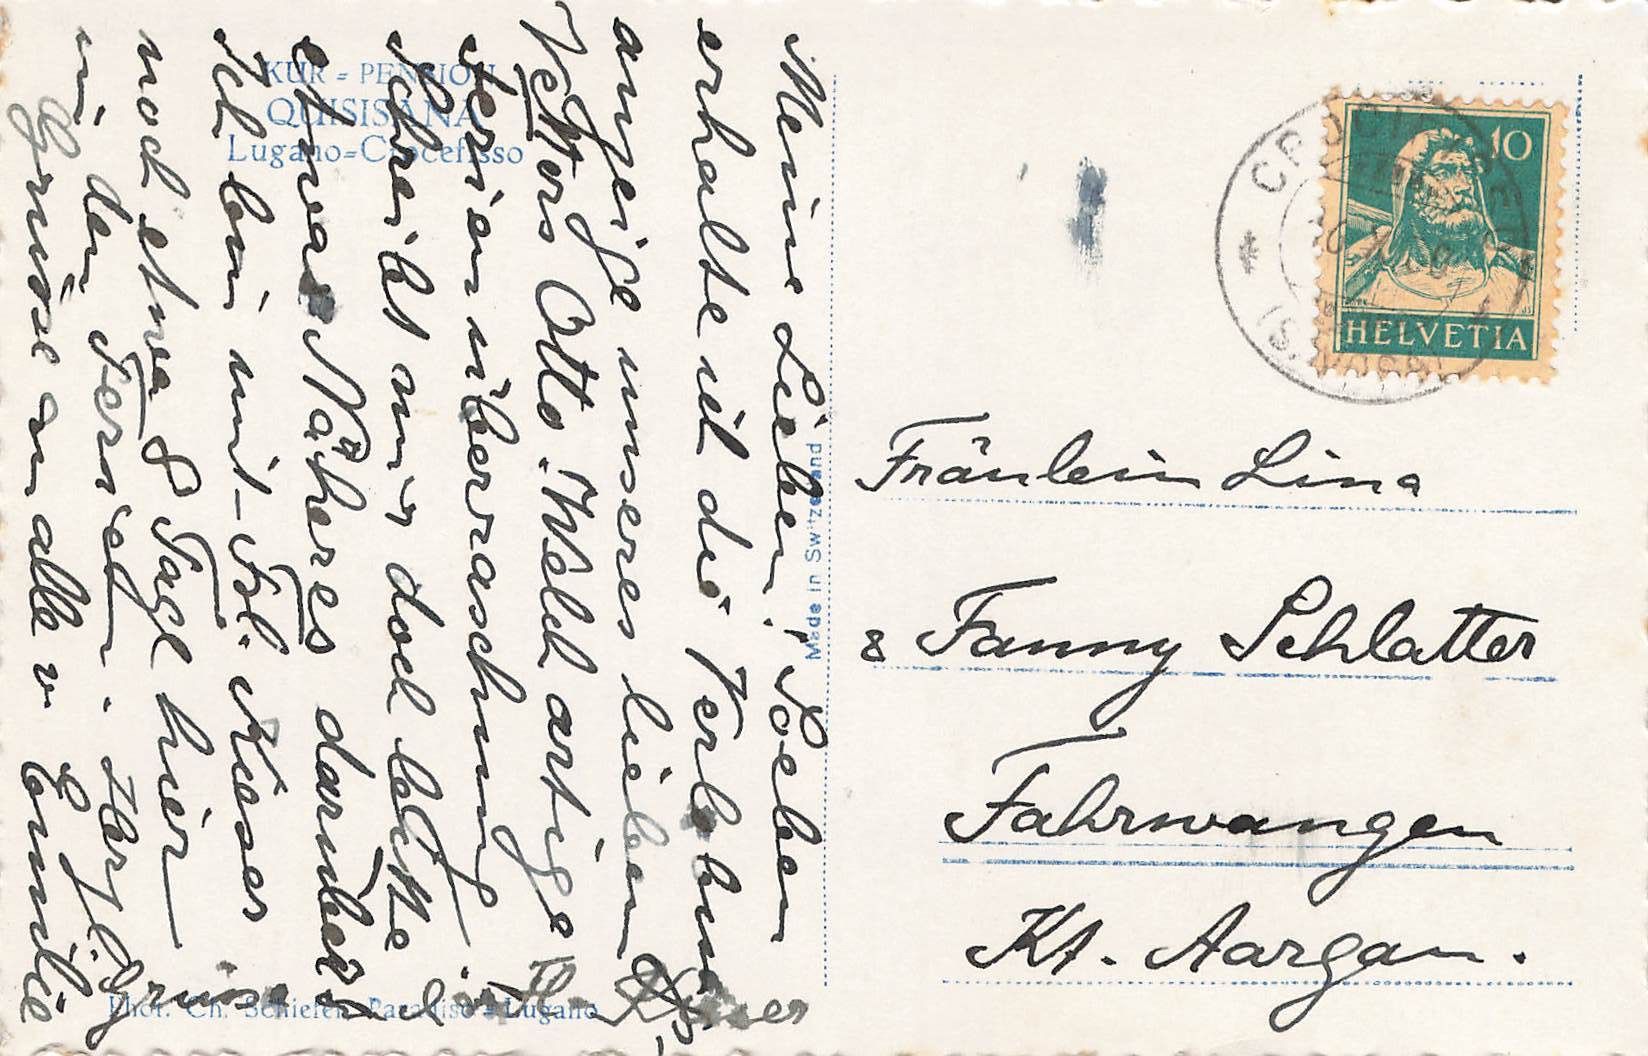 KUR = PENSION
QUISISANA
Lugano=Crocefisso
Meine Lieben! Soeben
erhalte ich die Verlobungs
anzeige unseres lieben
Vetters Otto. Welch artige
Ferienüberraschung
Schreibt mir doch bitte
etwas Näheres darüber.
Ich bin mit Frl. Kieser
noch etwa 8 Tage hier
in den Ferien. Herzl.
Grüsse an alle v Emilie
Made in Switzerland
Phot. Ch. Schiefer, Paradiso = Lugano
10
HELVETIA
Fräulein Lina
& Fanny Schlatter
Fahrwangen
Kt. Aargau.